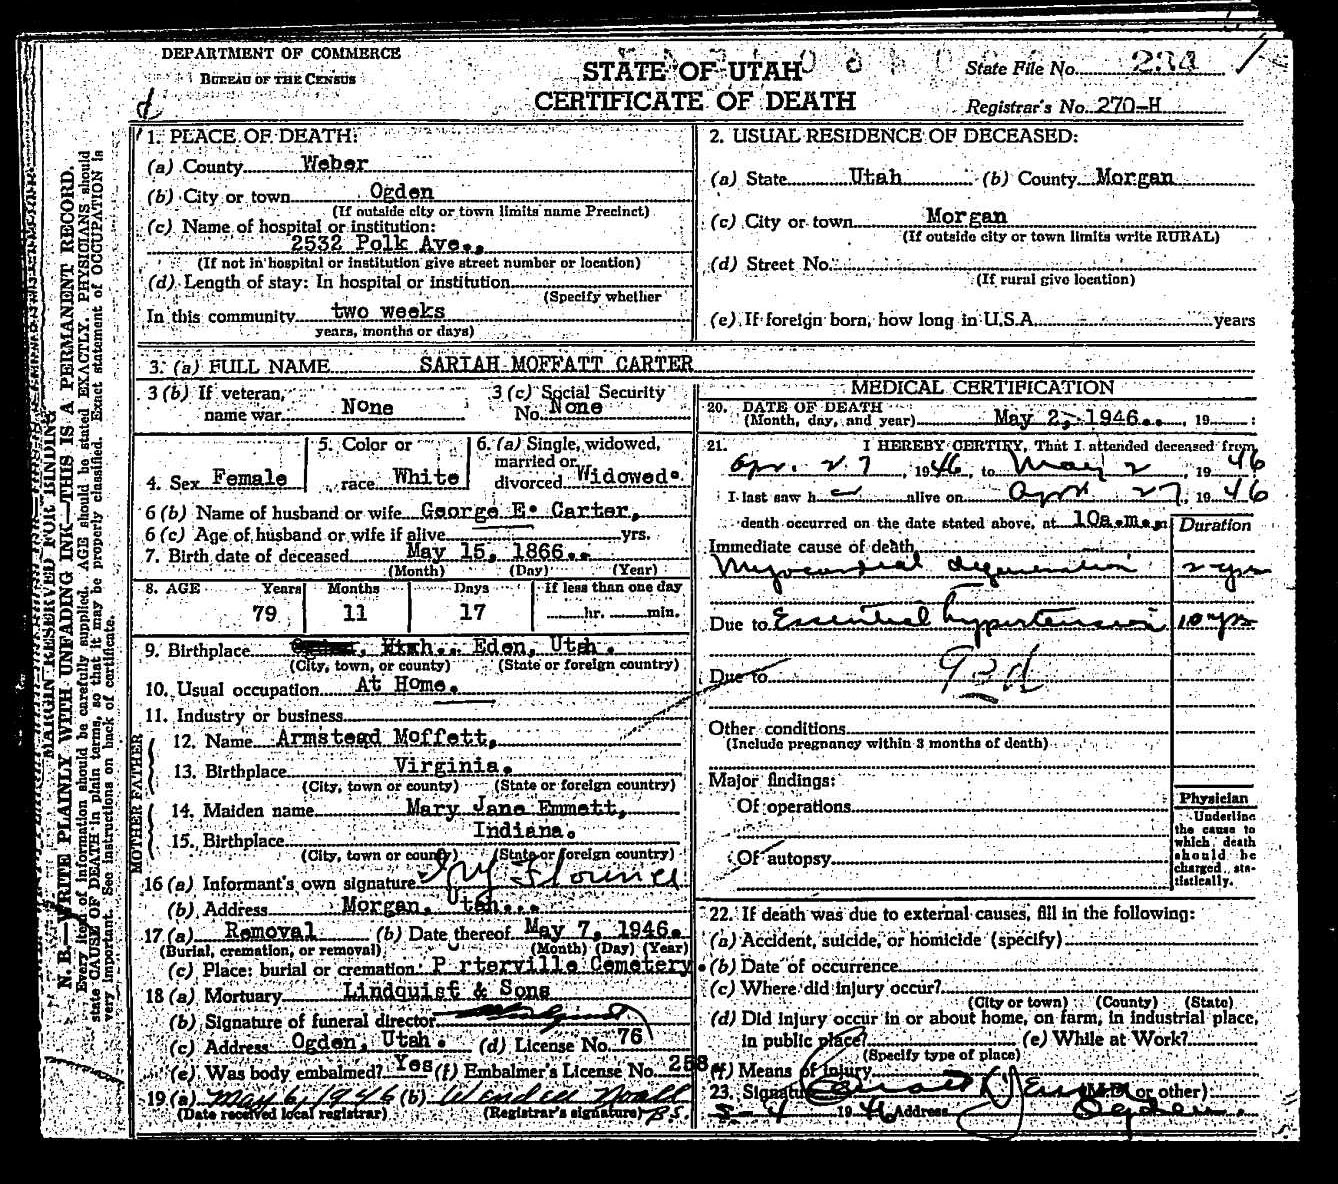 DEPARTMENT OF COMMERCE
BUREAU OF THE CENSUS
STATE OF UTAH
CERTIFICATE OF DEATH
State File No. 234
Registrar's No. 270-H
MARGIN RESERVED FOR BINDING
N. B.—WRITE PLAINLY WITH UNFADING INK—THIS IS A PERMANENT RECORD.
Every item of information should be carefully supplied. AGE should be stated EXACTLY. PHYSICIANS should
state CAUSE OF DEATH in plain terms, so that it may be properly classified. Exact statement of OCCUPATION is
very important. See instructions on back of certificate.
1. PLACE OF DEATH:
(a) County Weber
(b) City or town Ogden
(If outside city or town limits name Precinct)
(c) Name of hospital or institution:
2532 Polk Ave.,
(If not in hospital or institution give street number or location)
(d) Length of stay: In hospital or institution
(Specify whether
In this community two weeks
years, months or days)
2. USUAL RESIDENCE OF DECEASED:
(a) State Utah (b) County Morgan
(c) City or town Morgan
(If outside city or town limits write RURAL)
(d) Street No.
(If rural give location)
(e) If foreign born, how long in U.S.A. years
3. (a) FULL NAME SARIAH MOFFATT CARTER
3 (b) If veteran, name war None
3 (c) Social Security No. None
4. Sex Female
5. Color or race White
6. (a) Single, widowed, married or divorced Widowed.
6 (b) Name of husband or wife George E. Carter,
6 (c) Age of husband or wife if alive yrs.
7. Birth date of deceased May 15, 1866..
(Month) (Day) (Year)
8. AGE Years Months Days If less than one day
79 11 17 hr. min.
9. Birthplace Utah.. Eden, Utah.
(City, town, or county) (State or foreign country)
10. Usual occupation At Home.
11. Industry or business
FATHER
12. Name Armstead Moffett,
13. Birthplace Virginia.
(City, town or county) (State or foreign country)
MOTHER
14. Maiden name Mary Jane Emmett,
15. Birthplace Indiana.
(City, town or county) (State or foreign country)
16 (a) Informant's own signature Florence
(b) Address Morgan, Utah...
17 (a) Removal (b) Date thereof May 7, 1946.
(Burial, cremation, or removal) (Month) (Day) (Year)
(c) Place: burial or cremation P rterville Cemetery.
18 (a) Mortuary Lindquist & Sons
(b) Signature of funeral director
(c) Address Ogden, Utah. (d) License No. 76
(e) Was body embalmed? Yes (f) Embalmer's License No. 258
19 (a) May 6, 1946 (b) Wendell Noall
(Date received local registrar) (Registrar's signature) B.S.
MEDICAL CERTIFICATION
20. DATE OF DEATH
(Month, day, and year) May 2, 1946.. , 19 :
21. I HEREBY CERTIFY, That I attended deceased from
Apr. 27, 1946, to May 2, 1946
I last saw her alive on Apr 27, 1946
death occurred on the date stated above, at 10a.m.m
Duration
Immediate cause of death
Myocardial degeneration 2 yrs
Due to Essential hypertension 10 yrs
Due to 93d
Other conditions
(Include pregnancy within 3 months of death)
Major findings:
Of operations
Of autopsy
Physician
Underline
the cause to
which death
should be
charged sta-
tistically.
22. If death was due to external causes, fill in the following:
(a) Accident, suicide, or homicide (specify)
(b) Date of occurrence
(c) Where did injury occur?
(City or town) (County) (State)
(d) Did injury occur in or about home, on farm, in industrial place,
in public place? (e) While at Work?
(Specify type of place)
(f) Means of injury
23. Signature (M.D. or other)
5-4 1946 Address Ogden.